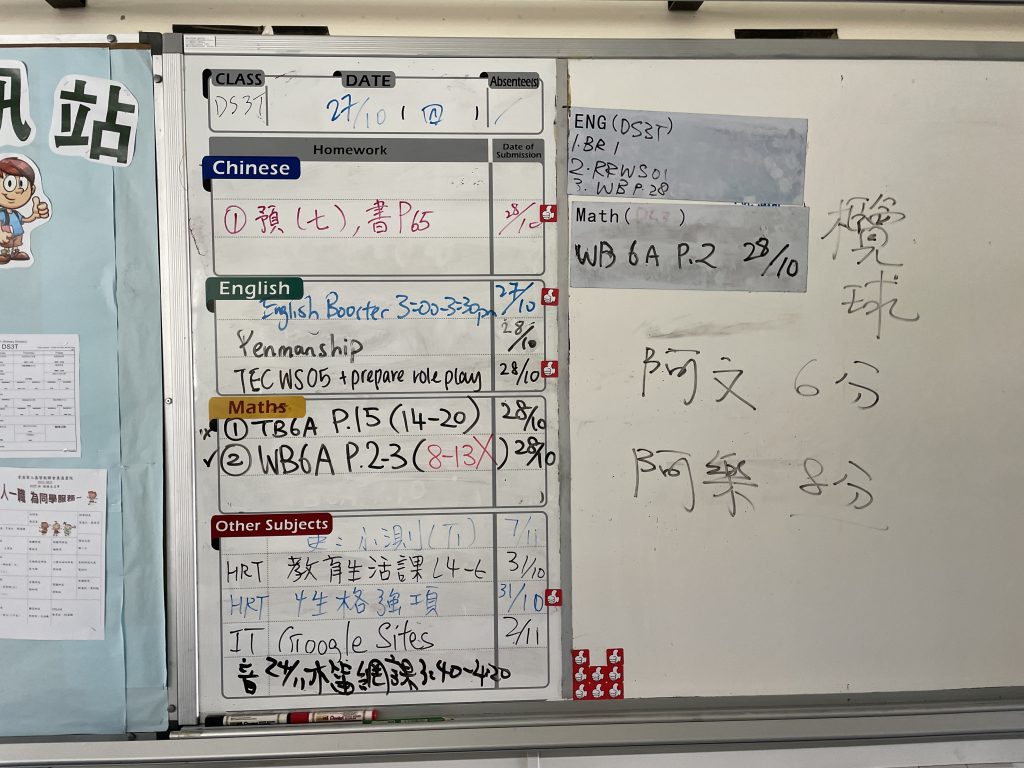 訊站
CLASS DATE Absentee(s)
DS3T 27/10 (四) /
Homework Date of Submission
Chinese
① 預(七), 書P65 28/10
English
English Booster 3:00-3:30pm 27/10
Penmanship 28/10
TEC WS05 + prepare role play 28/10
Maths
① TB6A P.15 (14-20) 28/10
✓ ② WB6A P.2-3 (8-13) 28/10
Other Subjects
小測(下) 7/11
HRT 教育生活課 L4-6 31/10
HRT 性格強項 31/10
IT Google Sites 2/11
音 24/11 木笛網課 3:40-4:20
ENG (DS3T)
1. BR 1
2. RRWS01
3. WB P.28
Math (DS3)
WB 6A P.2 28/10
欖球
阿文 6分
阿樂 8分
DS3T
一人一職 為同學服務